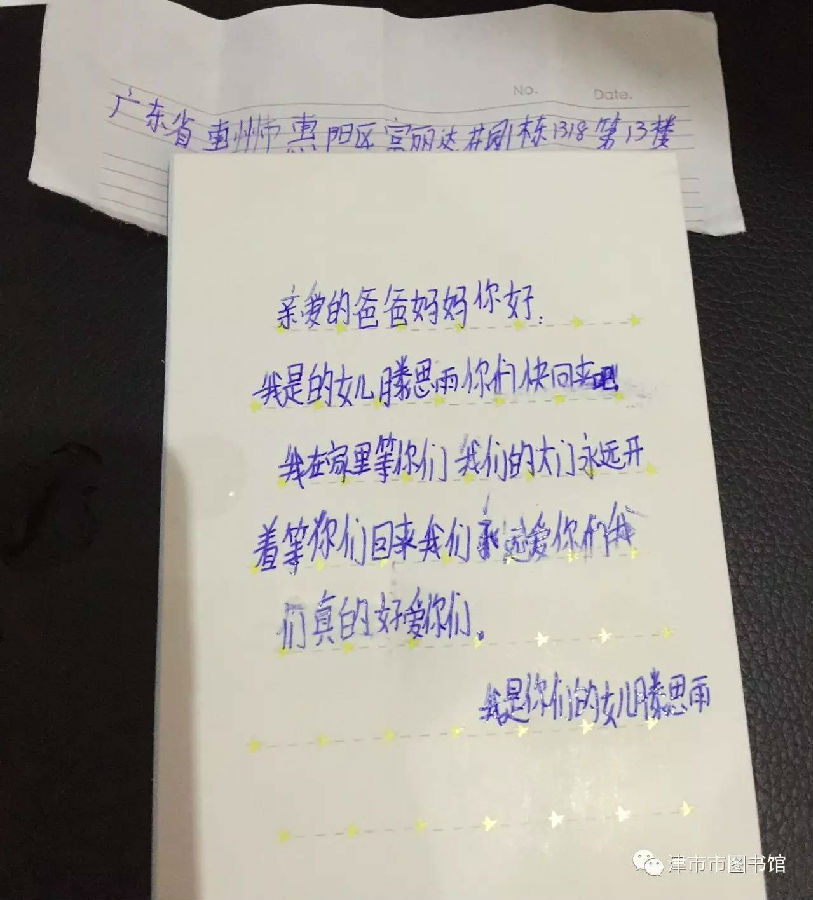 No. Date.
广东省惠州市惠阳区富丽达花园栋1318第13楼
亲爱的爸爸妈妈你好.
我是的女儿滕思雨你们快回来吧
我在家里等你们我们的大门永远开
着等你们回来我们永远爱你们我
们真的好爱你们。
我是你们的女儿滕思雨
津市市图书馆